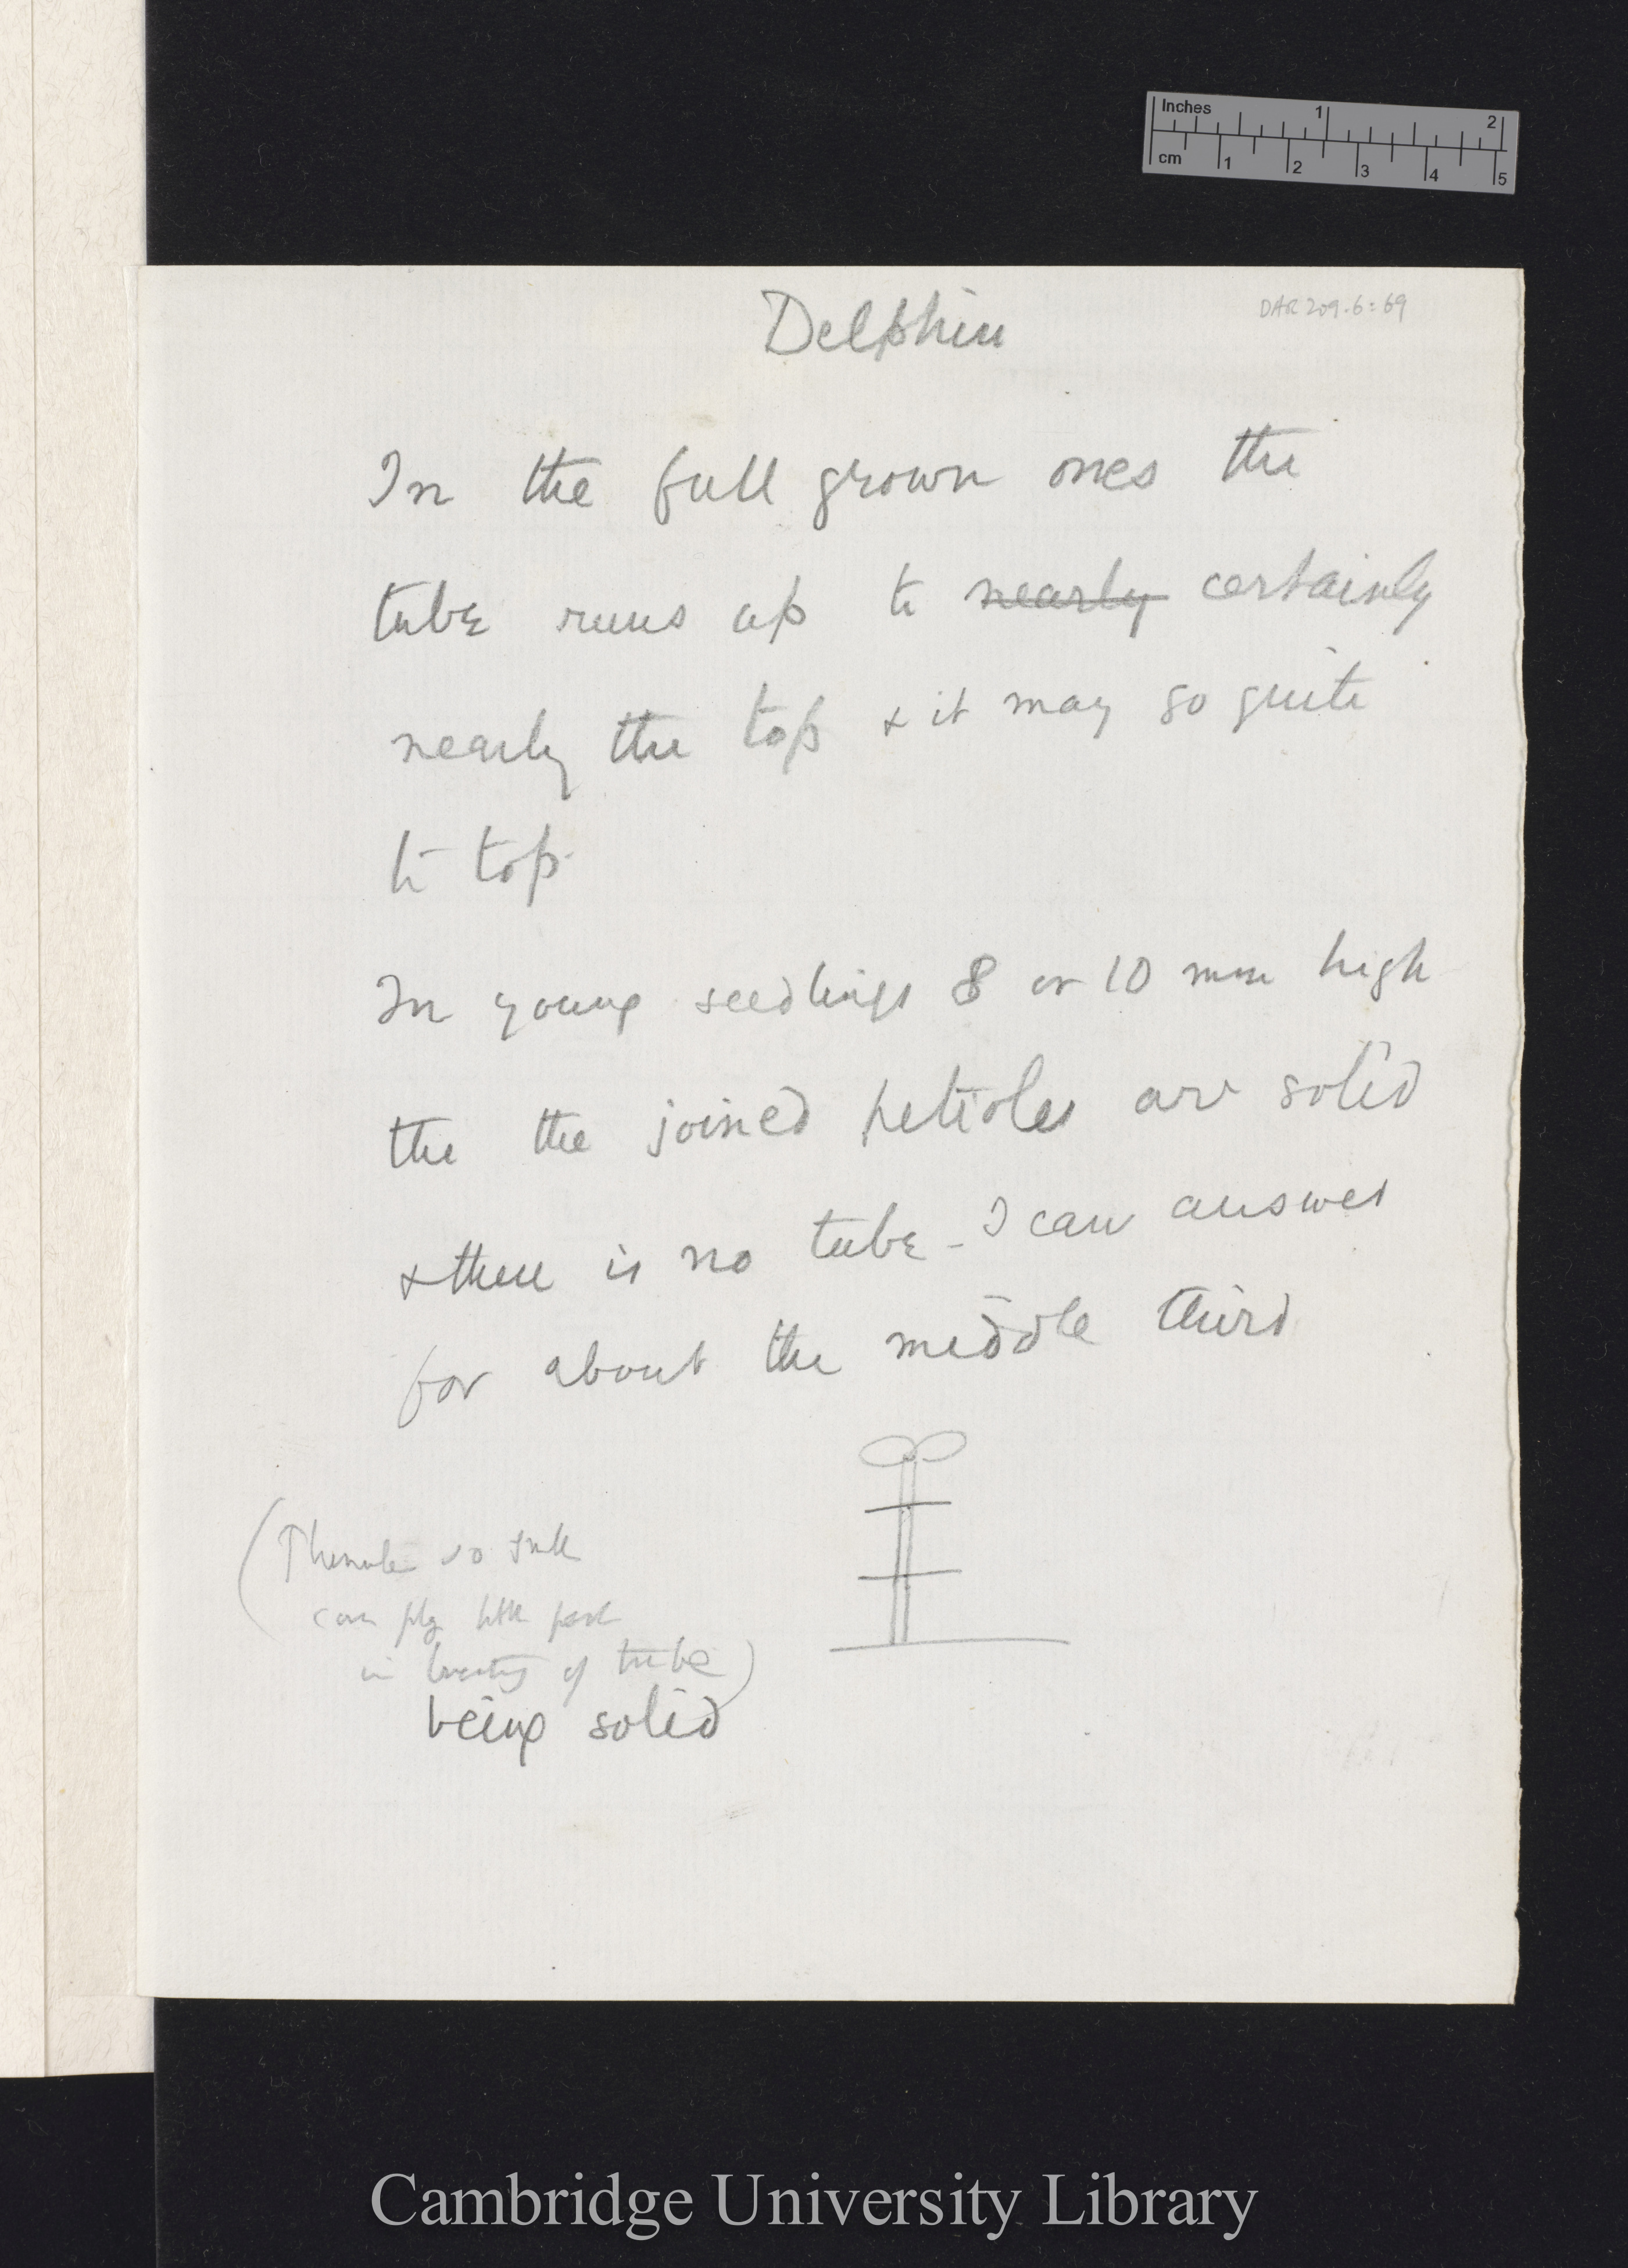 Inches 1 2
cm 1 2 3 4 5
DAR 209.6:69
Delphin
In the full grown ones the
tube runs up to nearly certainly
nearly the top & it may go quite
to top
In young seedlings 8 or 10 mm high
the the joined petioles are solid
& there is no tube - I can answer
for about the middle third
being solid
(Plumule so
can play little part
in of tube)
Cambridge University Library